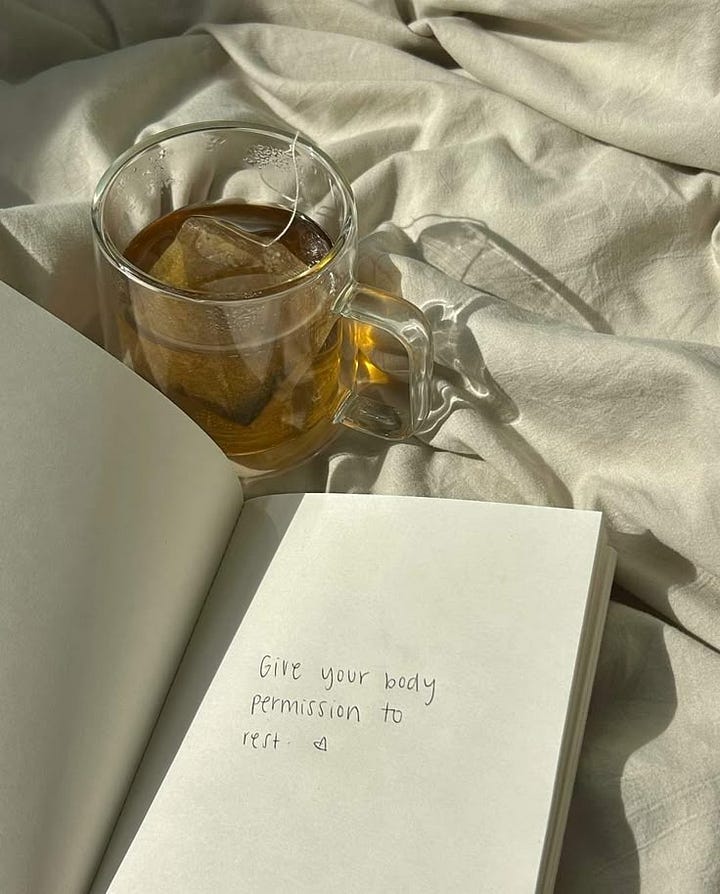 Give your body
permission to
rest. ♡